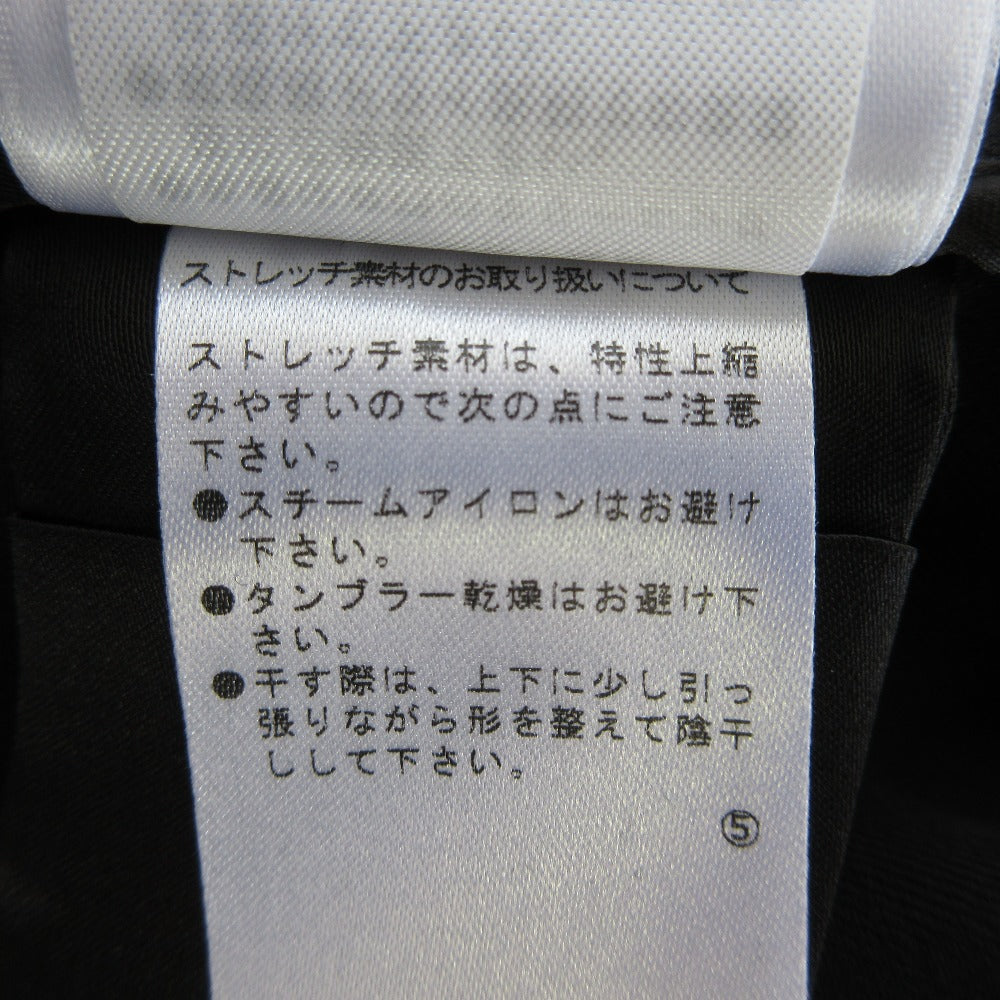 ストレッチ素材のお取り扱いについて
ストレッチ素材は、特性上縮
みやすいので次の点にご注意
下さい。
●スチームアイロンはお避け
下さい。
●タンブラー乾燥はお避け下
さい。
●干す際は、上下に少し引っ
張りながら形を整えて陰干
しして下さい。
⑤